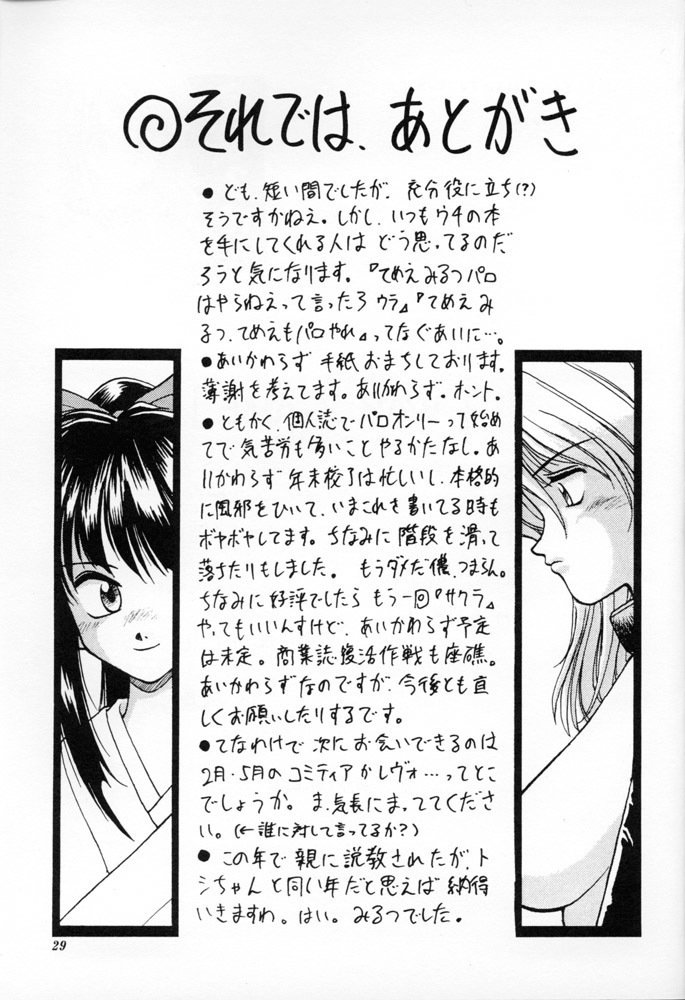 ◎それでは、あとがき
●ども、短い間でしたが、充分役に立ち(?)
そうですかねえ。しかし、いつもウチの本
を手にしてくれる人は どう思ってるのだ
ろうと気になります。『てめえみるつパロ
はやらねえって言ったろウラ』『てめえみ
るつ、てめえもパロやれ』ってなぐあいに…。
●あいかわらず 手紙おまちしております。
薄謝を考えてます。あいかわらず。ホント。
●ともかく、個人誌でパロオンリーって始め
てで気苦労も多いことやるかたなし。あ
いかわらず 年末校了は忙しいし、本格的
に風邪をひいて、いまこれを書いてる時も
ボヤボヤしてます。ちなみに 階段を滑って
落ちたりもしました。 もうダメだ儂、つまらん。
ちなみに好評でしたら もう一回『サクラ』
やってもいいんすけど、あいかわらず予定
は未定。商業誌復活作戦も座礁。
あいかわらずなのですが、今後とも宜
しくお願いしたりするです。
●てなわけで 次にお会いできるのは
2月・5月のコミティアかレヴォ…ってとこ
でしょうか。ま、気長にまっててくださ
い。(←誰に対して言ってるか?)
●この年で 親に説教されたが、ト
シちゃんと同い年だと思えば 納得
いきますわ。はい。みるつでした。
29